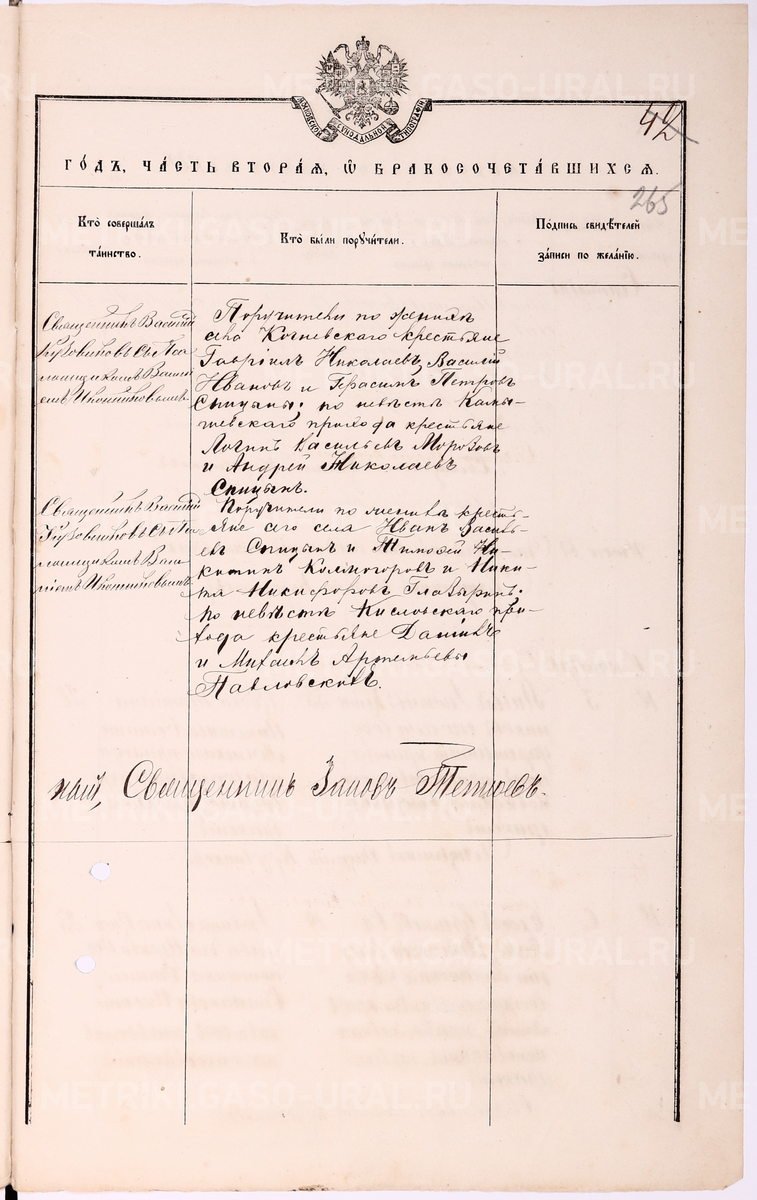 МОСКОВСКОЙ СѴНОДАЛЬНОЙ ТИПОГРАФІИ
42
ГО́ДЪ, ЧА́СТЬ ВТОРА́Я, Ѿ БРАКОСОЧЕТА́ВШИХСЯ.
265
Кто̀ совершалъ
та́инство.
Кто̀ бы́ли порꙋчи́тели.
По́дпись свидѣ́телей
за́писи по жела́нїю.
Священникъ Василій
съ Пса-
ломщикомъ Васили-
емъ Иконниковымъ.
Поручители по женихѣ
села Кочневскаго крестьяне
Гавріилъ Николаевъ, Василій
Ивановъ и Герасимъ Петровъ
Спицыны; по невѣстѣ Камы-
шевскаго прихода крестьяне
Логинъ Васильевъ Морозовъ
и Андрей Николаевъ
Спицынъ.
Священникъ Василій
съ Пса-
ломщикомъ Васи-
ліемъ Иконниковымъ.
Поручители по женихѣ кресть-
яне сего села Иванъ Василь-
евъ Спицынъ и Тимофей Ни-
китинъ и Ники-
та Никифоровъ
по невѣстѣ Кисловскаго при-
хода крестьяне Даніилъ
и Михаилъ Артемьевы
Павловскихъ.
Священникъ
METRIKI.GASO-URAL.RU